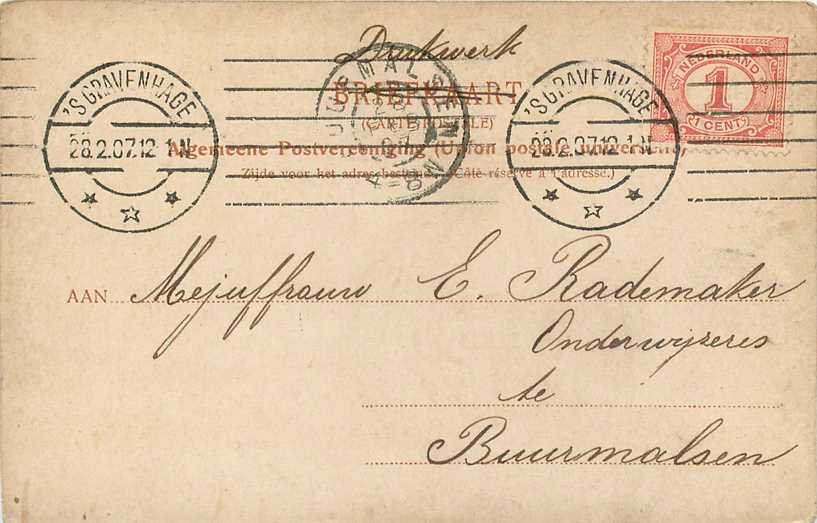 Drukwerk
NEDERLAND
1
1 CENT
'S GRAVENHAGE
28.2.07.12 1N
'S GRAVENHAGE
28.2.07.12 1N
BRIEFKAART
(CARTE POSTALE)
Algemeene Postvereeniging (Union postale universelle)
Zijde voor het adres bestemd. (Côté réservé à l'adresse.)
AAN Mejuffrouw E. Rademaker
Onderwijzeres
te
Buurmalsen